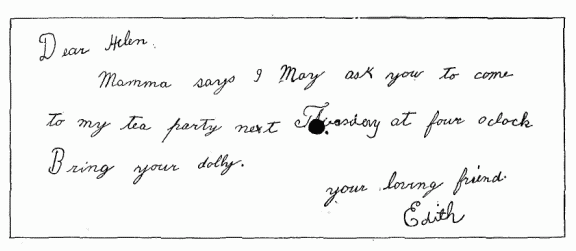 Dear Helen.
Mamma says I May ask you to come
to my tea party next at four oclock
Bring your dolly.
your loving friend.
Edith